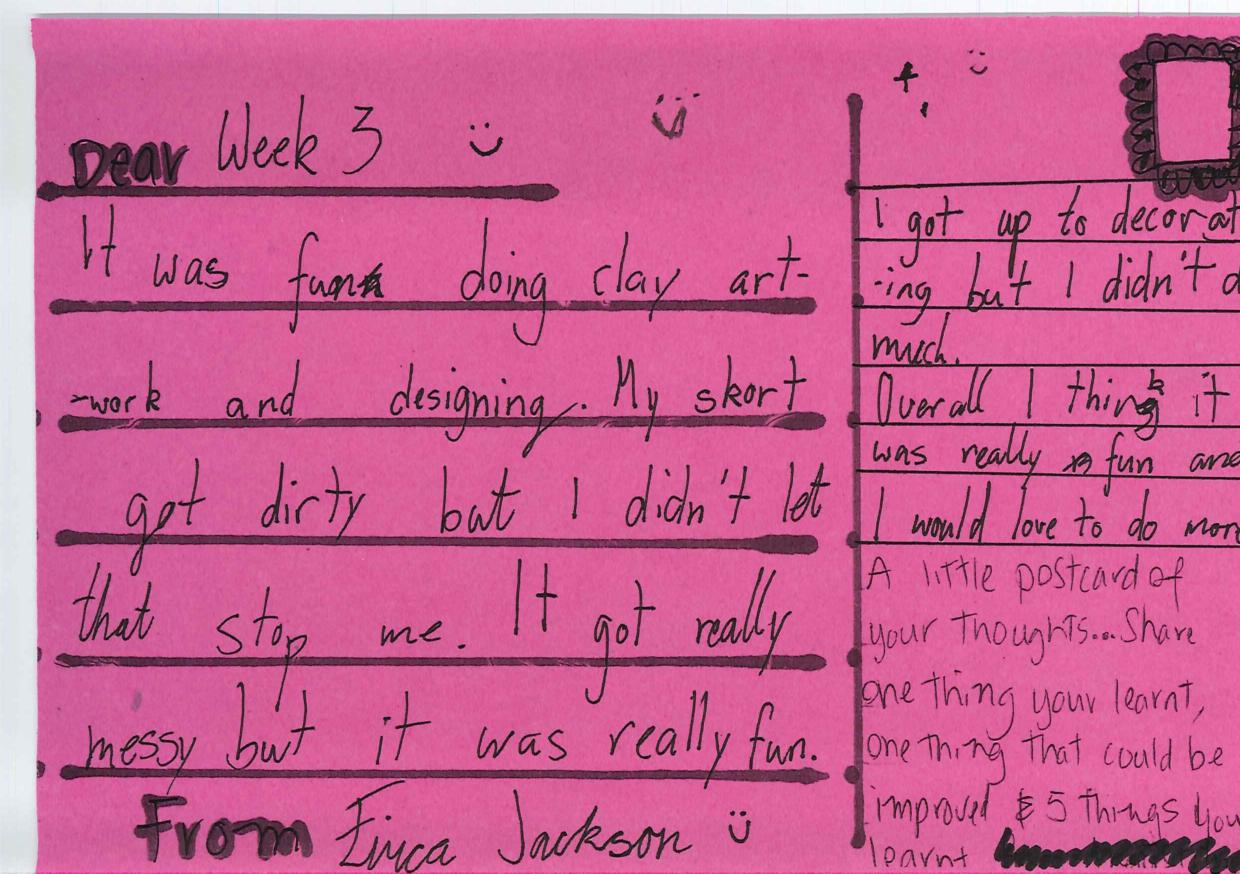 Dear Week 3
It was fun doing clay art-
-work and designing. My skort
got dirty but I didn't let
that stop me. It got really
messy but it was really fun.
From Erica Jackson
I got up to decorat
-ing but I didn't d
much.
Overall I think it
was really fun and
I would love to do more
A little postcard of
your thoughts... Share
one thing your learnt,
one thing that could be
improved & 5 things you
learnt